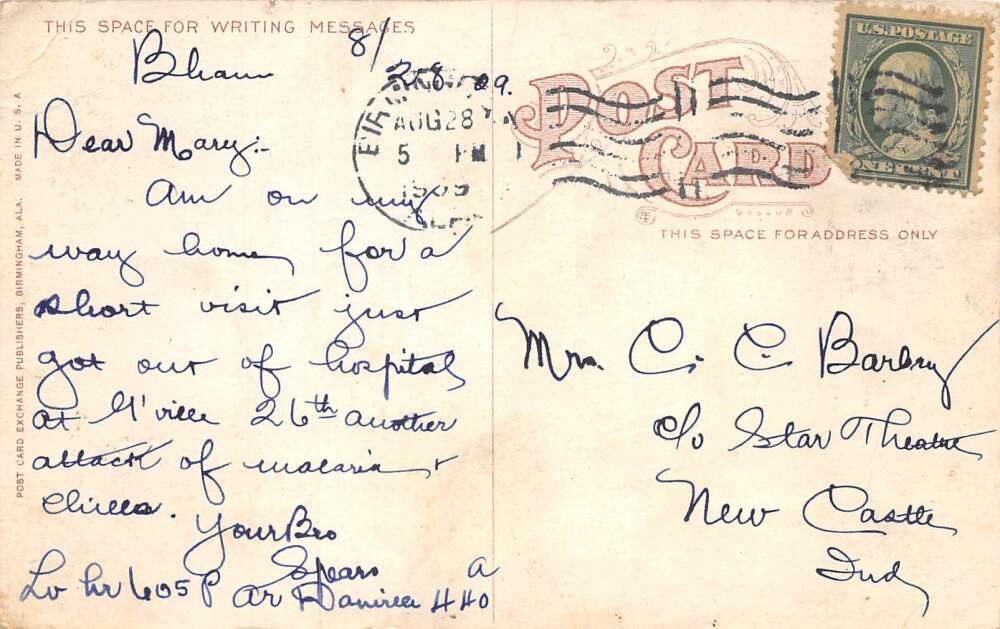 THIS SPACE FOR WRITING MESSAGES
Bham 8/28 09.
Dear Mary:-
Am on my
way home, for a
short visit just
got out of hospital
at G'ville 26th another
attack of malaria +
chills.
Your Bro
Spears
Lv hr 605 P Ar Danville 440 a
POST CARD EXCHANGE PUBLISHERS, BIRMINGHAM, ALA. MADE IN U.S.A
AUG 28
5 PM
1909
ALA
U.S. POSTAGE
ONE CENT
POST
CARD
THIS SPACE FOR ADDRESS ONLY
Mrs. C. C.
c/o Star Theatre
New Castle
Ind